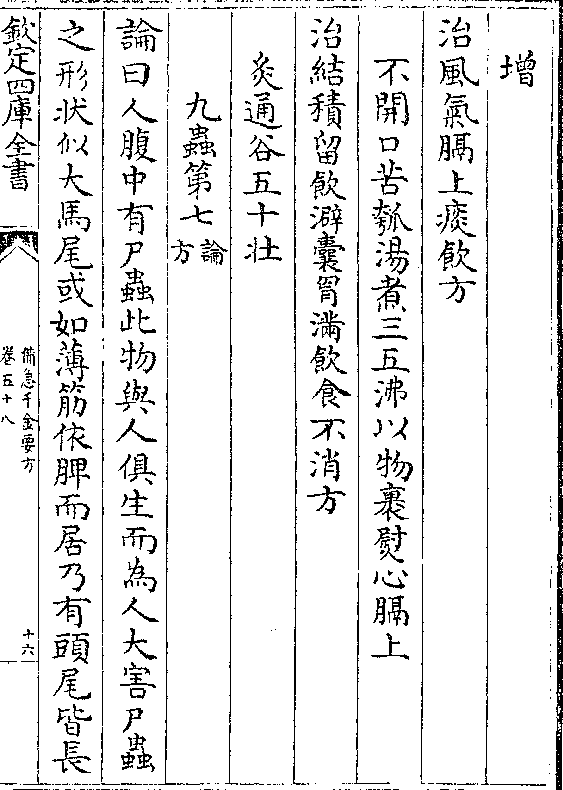 增
治風氣膈上痰飲方
不開口苦瓠湯煮三五沸以物裹熨心膈上
治結積留飲澼囊胷滿飲食不消方
灸通谷五十壯
九蟲第七論方
論曰人腹中有尸蟲此物與人俱生而為人大害尸蟲
之形狀似大馬尾或如薄筋依脾而居乃有頭尾皆長
欽定四庫全書
備急千金要方
卷五十八
十六